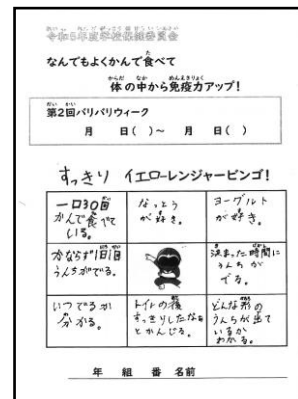 令和5年度学校保健委員会
なんでもよくかんで食べて
体の中から免疫力アップ!
第2回バリバリウィーク
月 日( )~ 月 日( )
すっきり イエローレンジャービンゴ!
一口30回
かんで食べて
いる。
なっとう
が好き。
ヨーグルト
が好き。
かならず1日1回
うんちがでる。
決まった時間に
うんちが
でる。
いつでるか
分かる。
トイレの後
すっきりしたなぁ
とかんじる。
どんな形の
うんちが出て
いるか
わかる。
年 組 番 名前